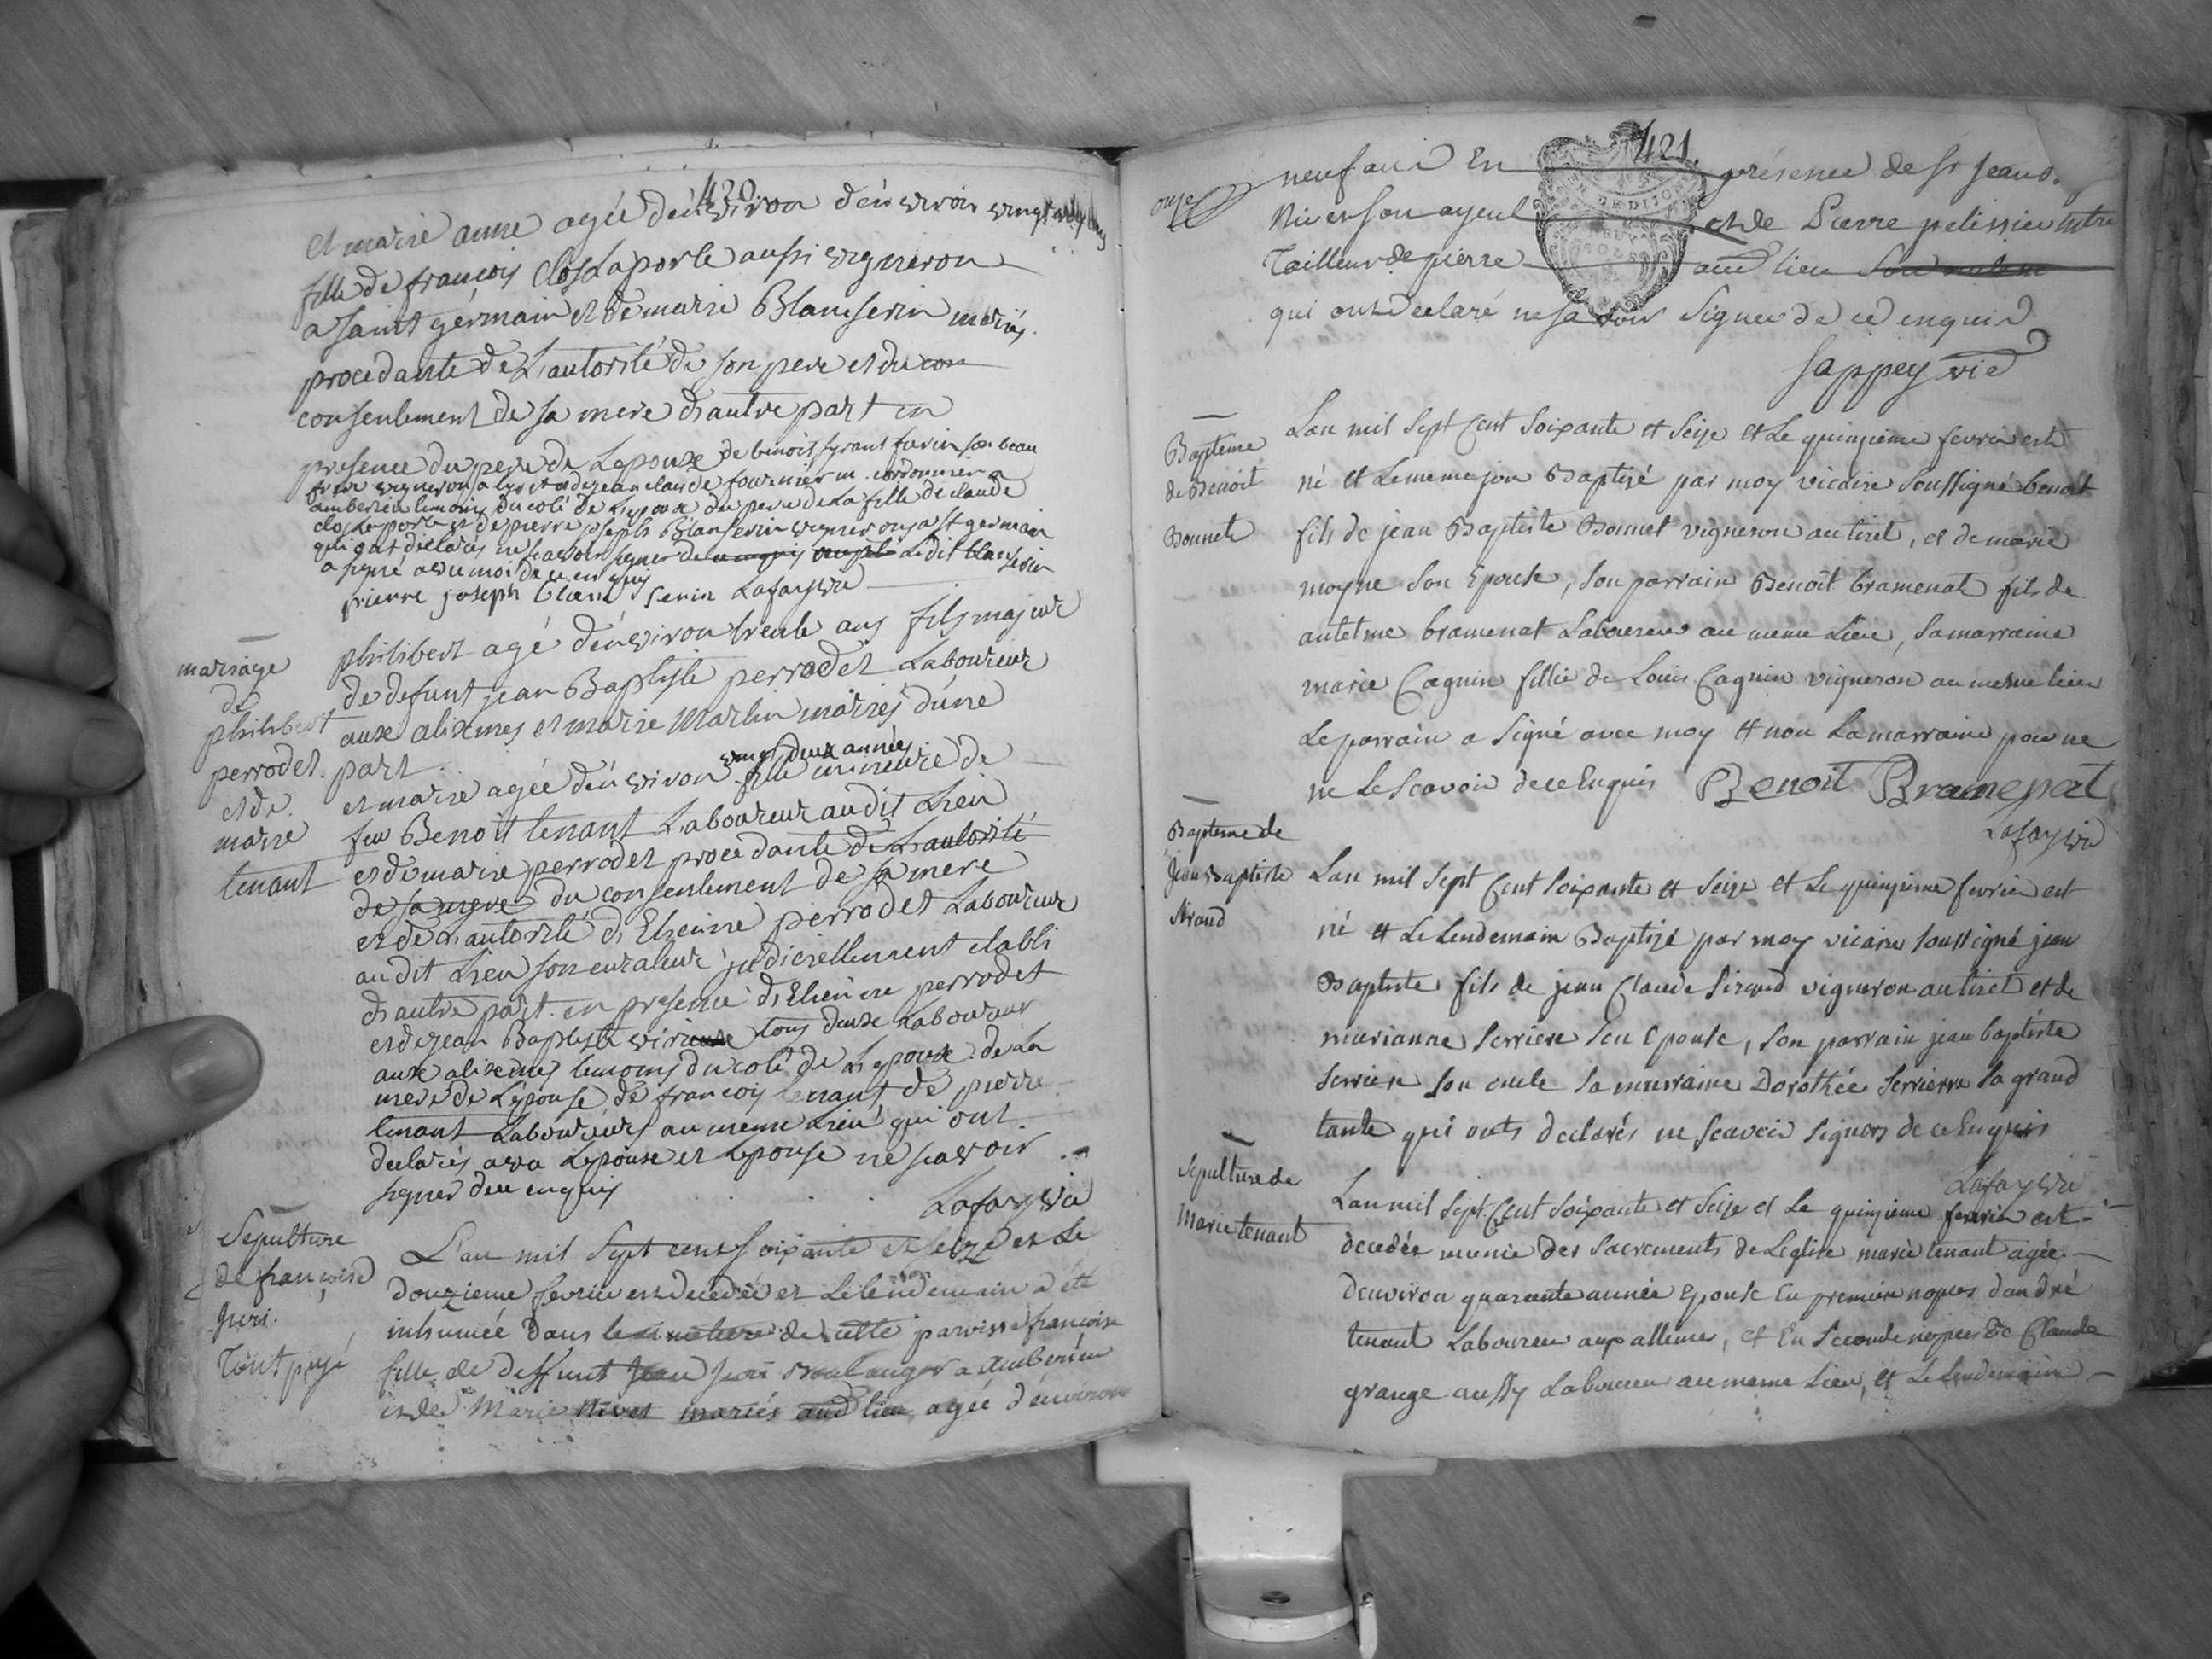 420
et marie anne agée d'énviron d'énviron vingt
fille de françois Clos Laporte aussi vigneron
a saint gérmain et de marie Blancserin mariés
procedante de L'autorité de son pere et du con
consentement de sa mere d'autre part en
presence du pere de Lepoux de benoit son beau
frere vigneron a et de jean claude fournier cordonnier a
amberieu temoins du coté de Lepoux du pere de La fille de claude
clos Laporte et de pierre joseph Blanserin vignerons a st germain
qui ont déclarés ne scavoir signer de ce enquis Ledit blanserin
a signé avec moi de ce enquis
pierre joseph blanc serin Lafay vic
mariage
de
philibert
perrodet.
et de.
marie
tenant
philibert agé d'énviron trente ans fils majeur
de defunt jean Baptiste perrodet Laboureur
aux alixmes et marie Martin mariés d'une
part
vingt deux années
et marie agée d'énviron fille mineure de
feu Benoit tenant Laboureur audit Lieu
et de marie perrodet procedante de L'autorité
de sa mere du consentement de sa mere
et de L'autorité d'Etienne perrodet Laboureur
au dit Lieu son curateur judiciellement etabli
d'autre part. en presence d'Etienne perrodet
et de jean Baptiste tous deux Laboureur
aux aliximes temoins du coté de Lepoux de La
mere de Lépouse de françois tenant de pierre
tenant Laboureurs au meme Lieu qui ont
declarés avec Lepoux et Lepouse ne scavoir
signer de ce enquis
Lafay vic
Sepulture
de françoise
juri.
Tout payé
L'an mil Sept cent soixante et seize et Le
douzieme fevrier est decedée et Le lendemain a été
inhumée dans le cimetiere de cette paroisse françoise
fille de deffunt Jean juri Boulanger a Amberieu
et de Marie Nivet mariés aud lieu, agée d'énviron
421.
onze
neuf ans En présence de sr jean
Nivet son ayeul et de Pierre pelissier
Tailleur de pierre aud lieu
qui ont declaré ne savoir signer de ce enquis
Sappey vic
Bapteme
de Benoit
Bonnet
Lan mil Sept Cent Soixante et Seize et Le quinzieme fevrier est
né et Le meme jour Baptizé par moy vicaire soussigné benoit
fils de jean Baptiste Bonnet vigneron au tiret, et de marie
moyne Son Epouse, Son parrain Benoit bramenat fils de
antelme bramenat Laboureur au meme Lieu, Samarraine
marie Cagnin fille de Louis Cagnin vigneron au meme lieu
Le parrain a Signé avec moy et non La marraine pour ne
ne Le Scavoir de ce Enquis Benoit Bramenat
Lafay vic
Bapteme de
Jean Baptiste
Siraud
Lan mil Sept Cent Soixante et Seize et Le quinzieme fevrier est
né et Le Lendemain Baptizé par moy vicaire soussigné jean
Baptiste fils de jean Claude Siraud vigneron au tiret et de
marianne Serriere Son Epouse, Son parrain jean baptiste
Serriere Son oncle Sa marraine Dorothée Serriere Sa grand
tante qui onts declarés ne Scavoir Signers de ce Enquis
Lafay vic
Sepulture de
Marie tenant
Lan mil Sept Cent Soixante et Seize et Le quinzieme fevrier est
decedée munie des Sacrements de Leglise marie tenant agée
denviron quarante année Epouse En premiere nopces dandré
tenant Laboureur aux allimes, et En Seconde nopces de Claude
grange aussy Laboureur au meme Lieu, et Le Lendemain